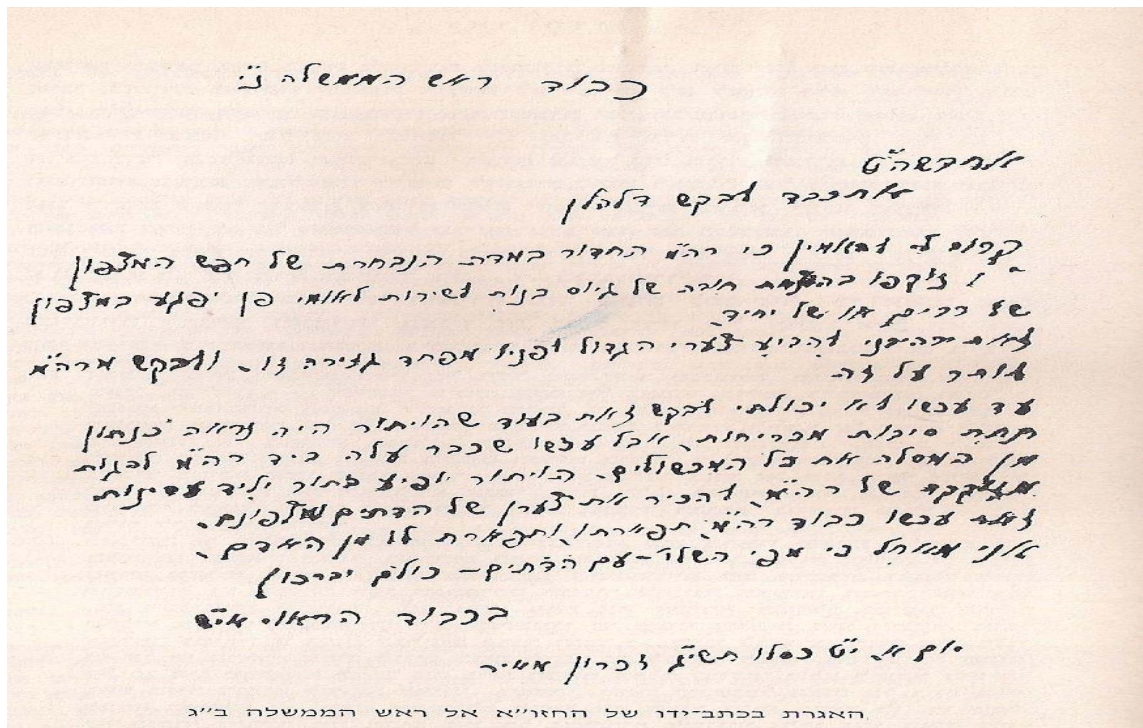 כבוד ראש הממשלה נ"י
אחדשה"ט
אתכבד לבקש דלהלן
קרוב לי להאמין כי רה"מ החדור במדת הנבחרת של חפש המצפון
חובה של גיוס בנות לשירות לאומי פן יפגע במצפון
של רבים או של יחיד
זאת להביע צערי הגדול לפניו מפחד גזירה זו, ולבקש מרה"מ
לותר על זה
עד עכשו לא יכולתי לבקש זאת בעוד שהויתור היה נראה כנתון
תחת סיבות מכריחות, אבל עכשו שכבר עלה ביד רה"מ לפנות
מן המסלה את כל המכשולים, הויתור יופיע בתור יליד עדינות
של רה"מ, להכיר את צערן של הדתים ומצפונם,
זאת עכשו כבוד רה"מ, תפארתו, ותפארת לו מן האדם,
אני מיחל כי מפי השלו' עם הדתים – כולם יברכון
בכבוד הראוי אי"ש
יום א' י"ט כסלו תשי"ג זכרון מאיר
האגרת בכתב-ידו של החזו"א אל ראש הממשלה ב"ג